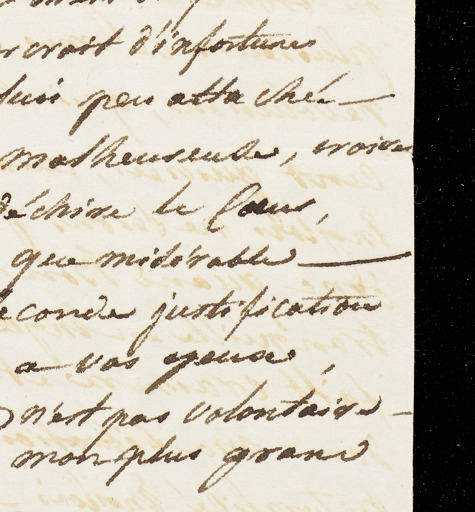 croit d'infortunes
suis peu attaché
malheureuse, croire
déchire le Cœur,
que misérable
seconde justification
a vos yeux,
n'est pas volontaire
mon plus grand